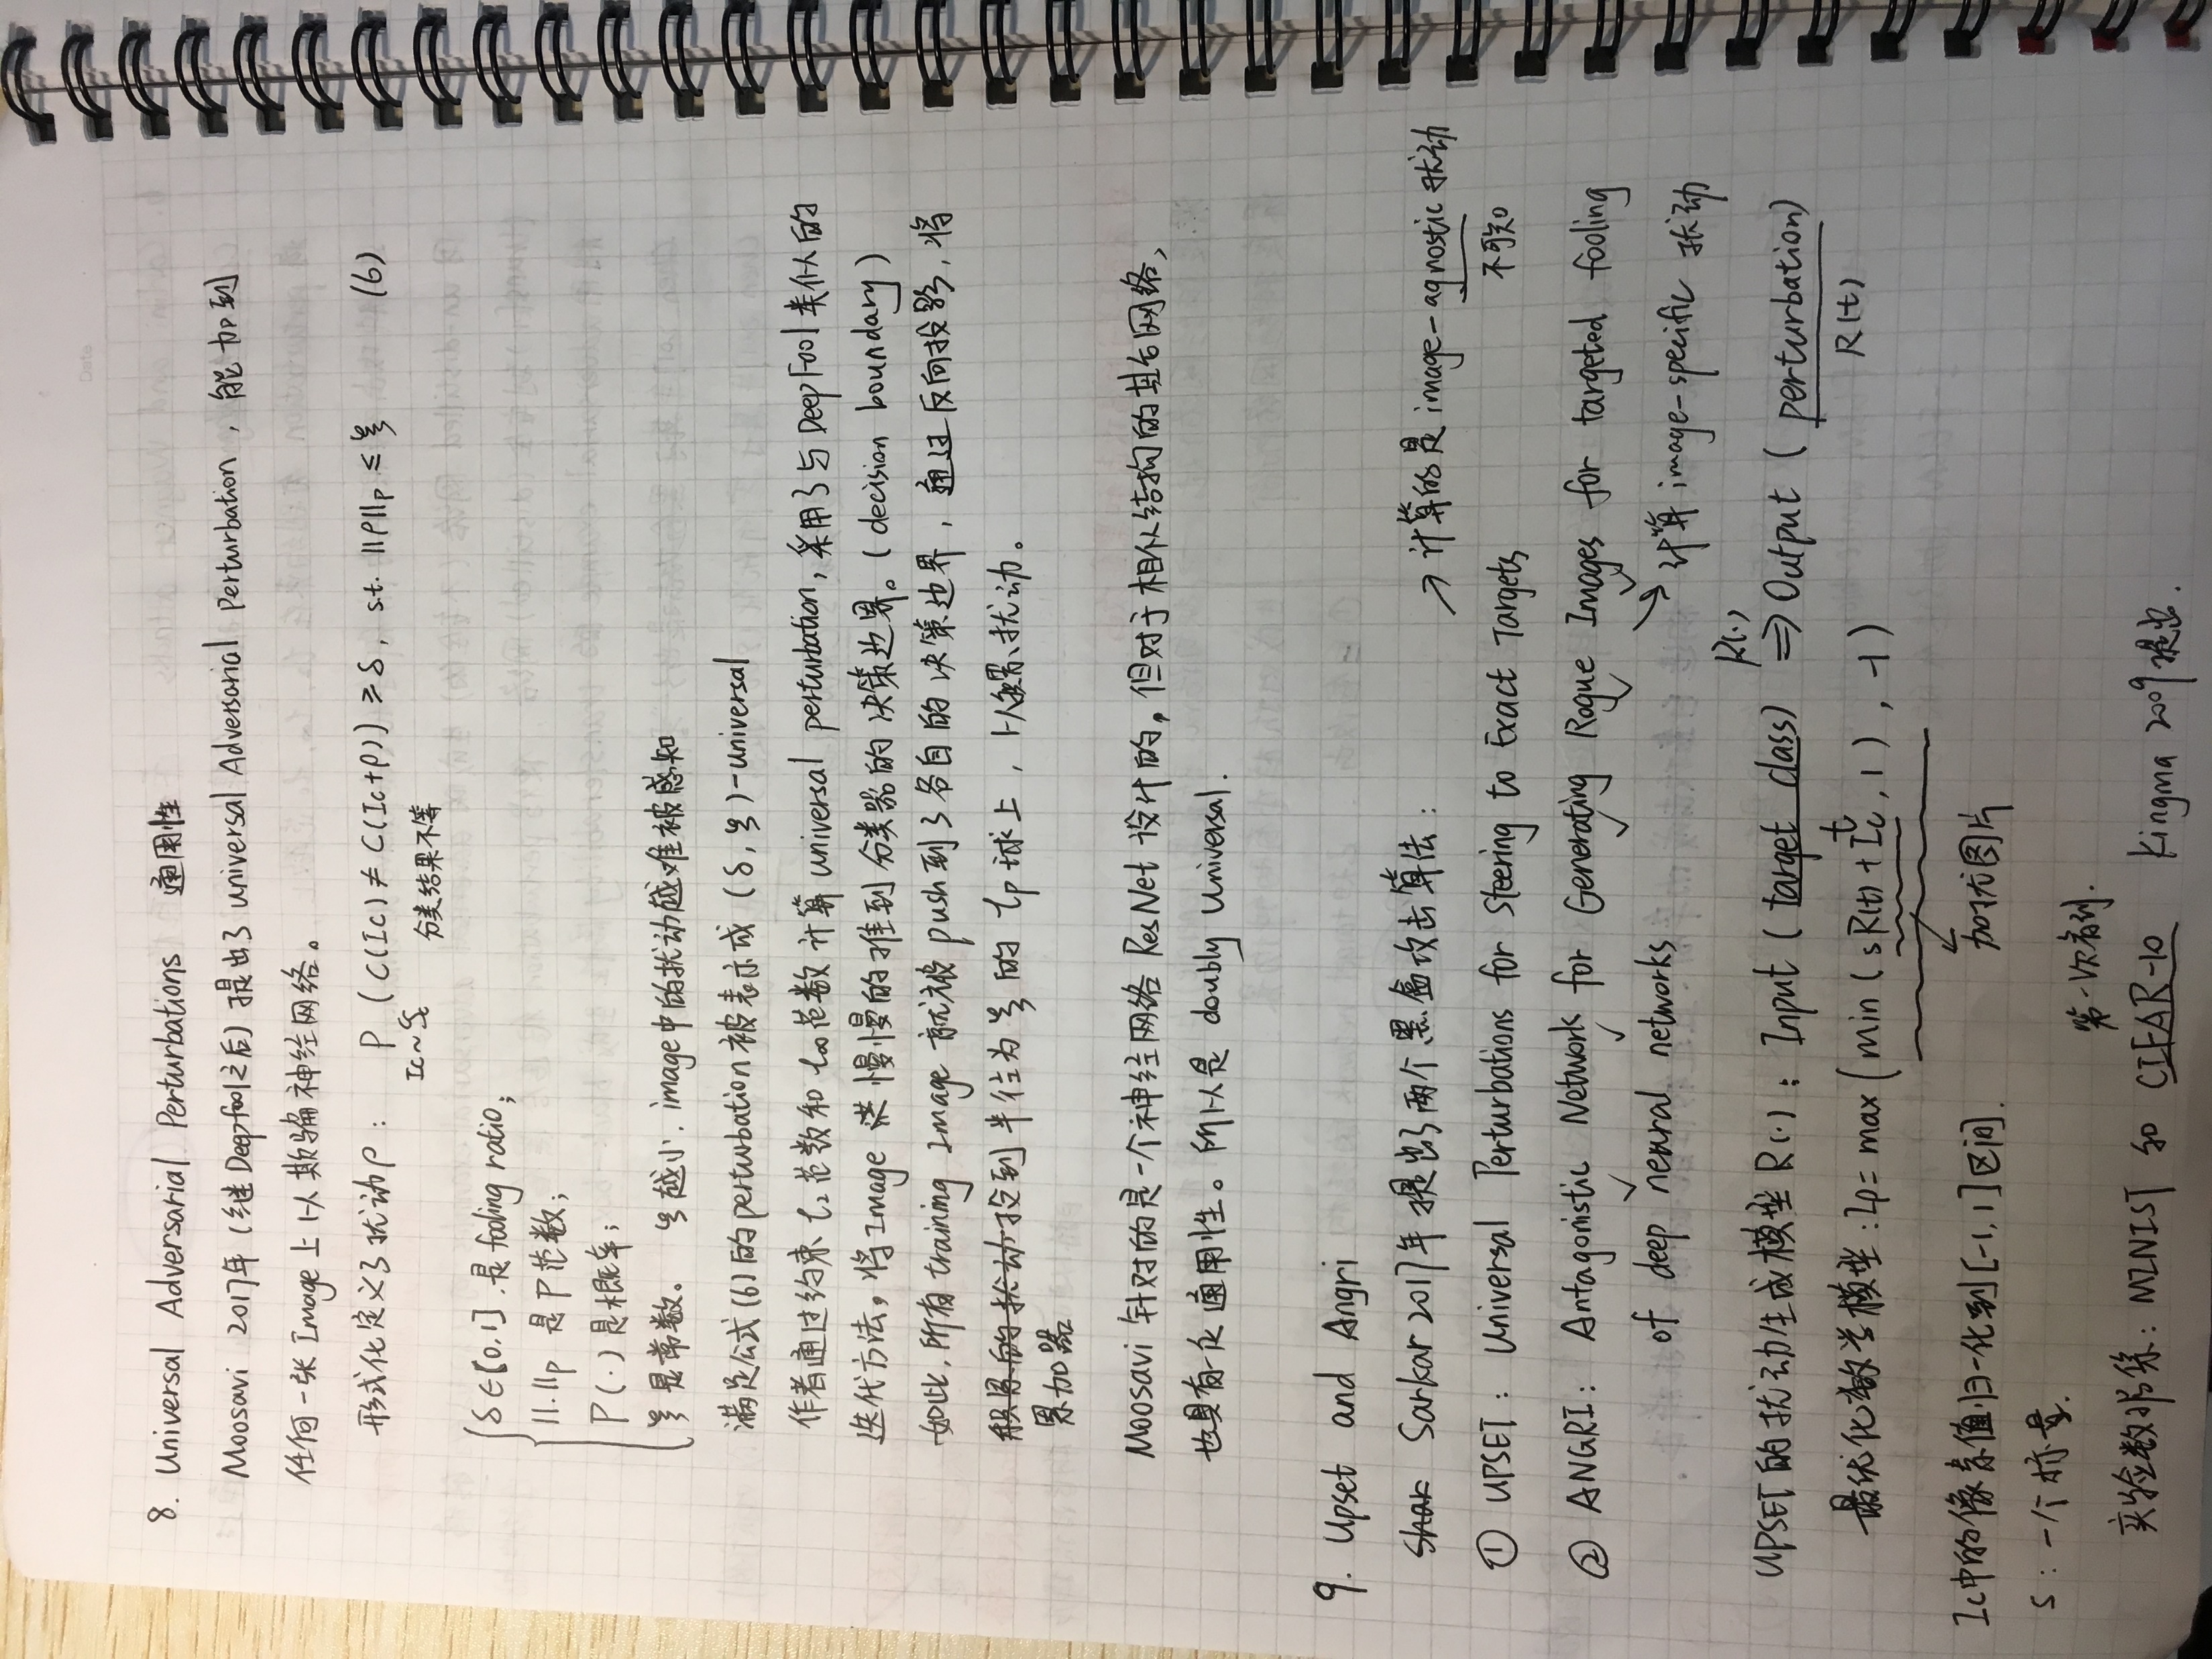 Date
8. Universal Adversarial Perturbations 通用性
Moosavi 2017年 (继Deepfool之后) 提出了 universal Adversarial Perturbation, 能加到
任何一张 Image 上以欺骗神经网络。
形式化定义了扰动ρ: P (C(Ic) ≠ C(Ic+ρ)) ≥ δ, s.t. ||ρ||p ≤ ξ (6)
Ic~ 分类结果不等
δ∈[0,1] 是 fooling ratio;
||·||p 是 P 范数;
P(·) 是概率;
ξ 是常数。 ξ 越小, image中的扰动越难被感知
满足公式(6)的perturbation被表示成 (δ, ξ)-universal
作者通过约束 l₂ 范数和 l∞ 范数计算 universal perturbation, 采用了与DeepFool类似的
迭代方法, 将Image 慢慢的推到分类器的决策边界。(decision boundary)
如此, 所有 training Image 都被 push 到了各自的决策边界, 通过反向投影, 将
累加器扰动投到半径为 ξ 的 lp 球上, 以
Moosavi 针对的是一个神经网络 ResNet 设计的, 但对于相似结构的其他网络,
也具有 通用性。所以是 doubly universal.
9. Upset and Angri
Sarkar 2017年 提出了两个黑盒攻击算法: → 计算的是 image-agnostic 扰动
不可知
① UPSET: Universal Perturbations for Steering to Exact Targets
② ANGRI: Antagonistic Network for Generating Rogue Images for targeted fooling
of deep neural networks → 计算 image-specific 扰动
R(·)
UPSET的扰动生成模型 R(·): Input (target class) ⇒ Output (perturbation)
R(t)
最优化数学模型: Ip = max(min(sR(t)+Ic, 1), -1)
加扰图片
Ic中的像素值归一化到[-1,1]区间.
s: 一个标量.
第一次看到.
实验数据集: MINIST 和 CIFAR-10 Kingma 2009提出.